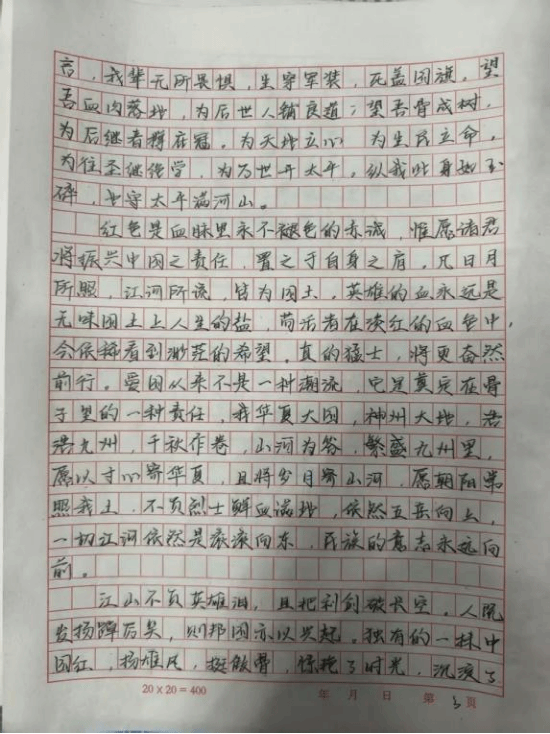 言，我辈无所畏惧，生穿军装，死盖国旗。望
吾血肉落地，为后世人铺良道；望吾骨成树，
为后继者撑在冠。为天地立心，为生民立命，
为往圣继绝学，为万世开太平。纵我此身如玉
碎，也守太平满河山。
红色是血脉里永不褪色的赤诚，惟愿诸君
将振兴中国之责任，置之于自身之肩，凡日月
所照，江河所流，皆为国土，英雄的血永远是
无味国土上人生的盐，苟活者在淡红的血色中，
会依稀看到渺茫的希望，真的猛士，将更奋然
前行。爱国从来不是一种潮流，它是奠定在骨
子里的一种责任，我华夏大国，神州大地，君
君九州，千秋作卷，山河为答，繁盛九州里，
愿以寸心寄华夏，且将岁月寄山河，愿朝阳常
照我土，不负烈士鲜血满地，依然五岳向上，
一切江河依然是滚滚向东，民族的意志永远向
前。
江山不负英雄泪，且把利剑破长空。人民
发扬踔厉矣，则邦国亦以兴起。独有的一抹中
国红，扬雄风，挺傲骨，惊艳了时光，沉淀了
20×20=400 年 月 日 第 3 页